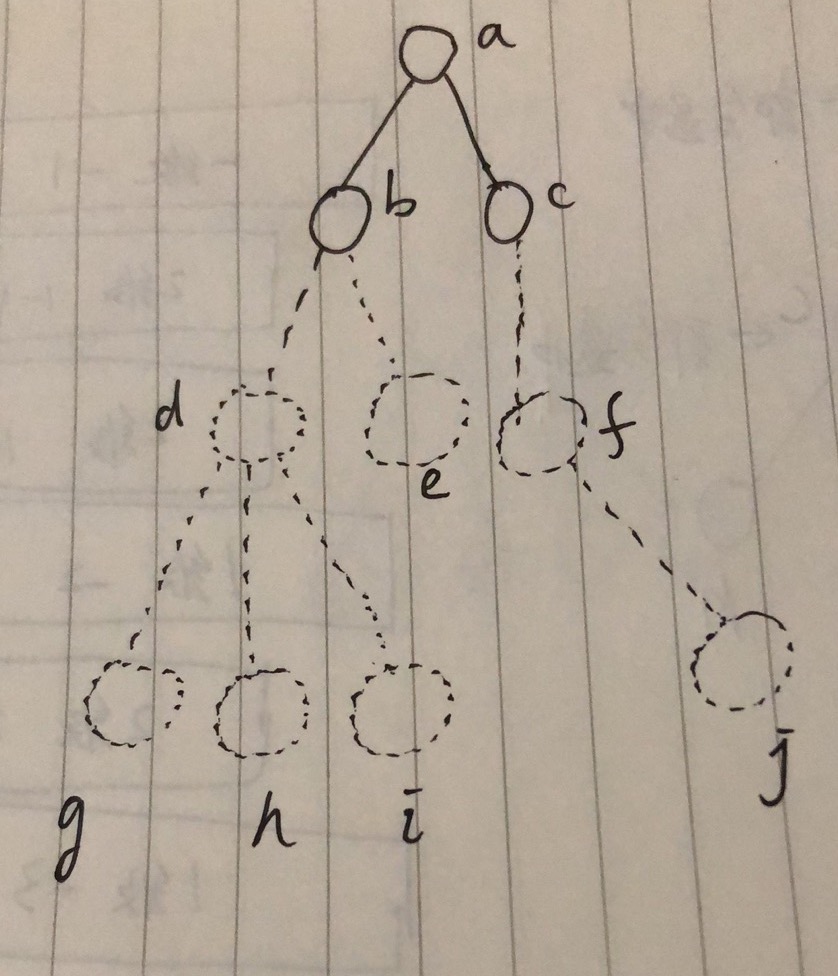 a
b c
d e f
g h i j